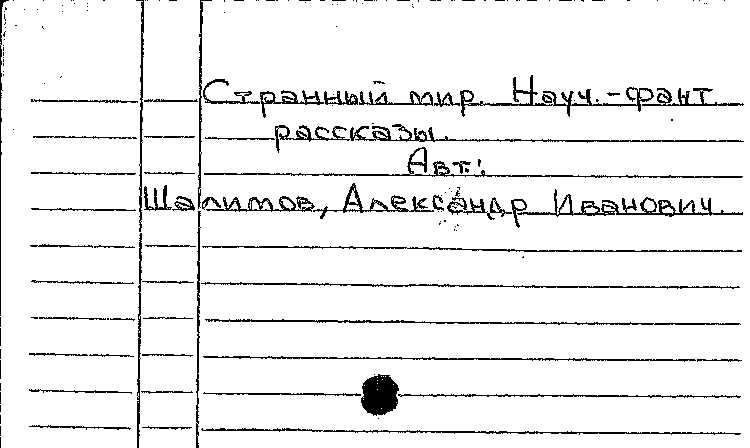 Странный мир. Науч.-фант
рассказы.
Авт.:
Шалимов, Александр Иванович.